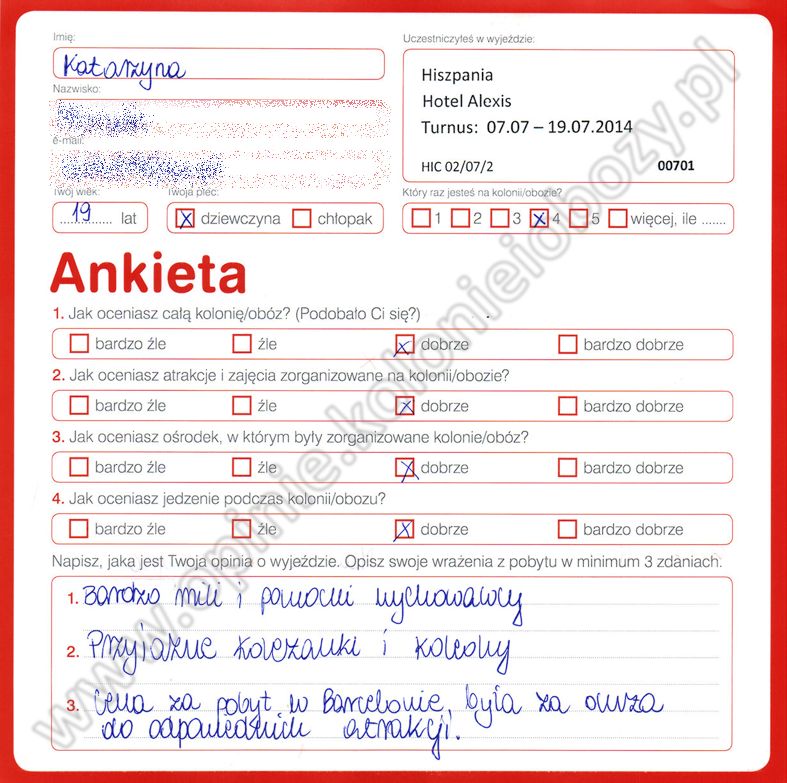 Imię:
Uczestniczyłeś w wyjeździe:
Katarzyna
Hiszpania
Nazwisko:
Hotel Alexis
Turnus: 07.07 – 19.07.2014
e-mail:
HIC 02/07/2 00701
Twój wiek: Twoja płeć: Który raz jesteś na kolonii/obozie?
19 lat X dziewczyna chłopak 1 2 3 X 4 5 więcej, ile .......
Ankieta
1. Jak oceniasz całą kolonię/obóz? (Podobało Ci się?)
bardzo źle źle X dobrze bardzo dobrze
2. Jak oceniasz atrakcje i zajęcia zorganizowane na kolonii/obozie?
bardzo źle źle X dobrze bardzo dobrze
3. Jak oceniasz ośrodek, w którym były zorganizowane kolonie/obóz?
bardzo źle źle X dobrze bardzo dobrze
4. Jak oceniasz jedzenie podczas kolonii/obozu?
bardzo źle źle X dobrze bardzo dobrze
Napisz, jaka jest Twoja opinia o wyjeździe. Opisz swoje wrażenia z pobytu w minimum 3 zdaniach.
1. Bardzo mili i pomocni wychowawcy
2. Przyjazne koleżanki i koledzy
3. Cena za pobyt w Barcelonie, była za duża
do odpowiednich atrakcji.
www.opinie.kolonieiobozy.pl